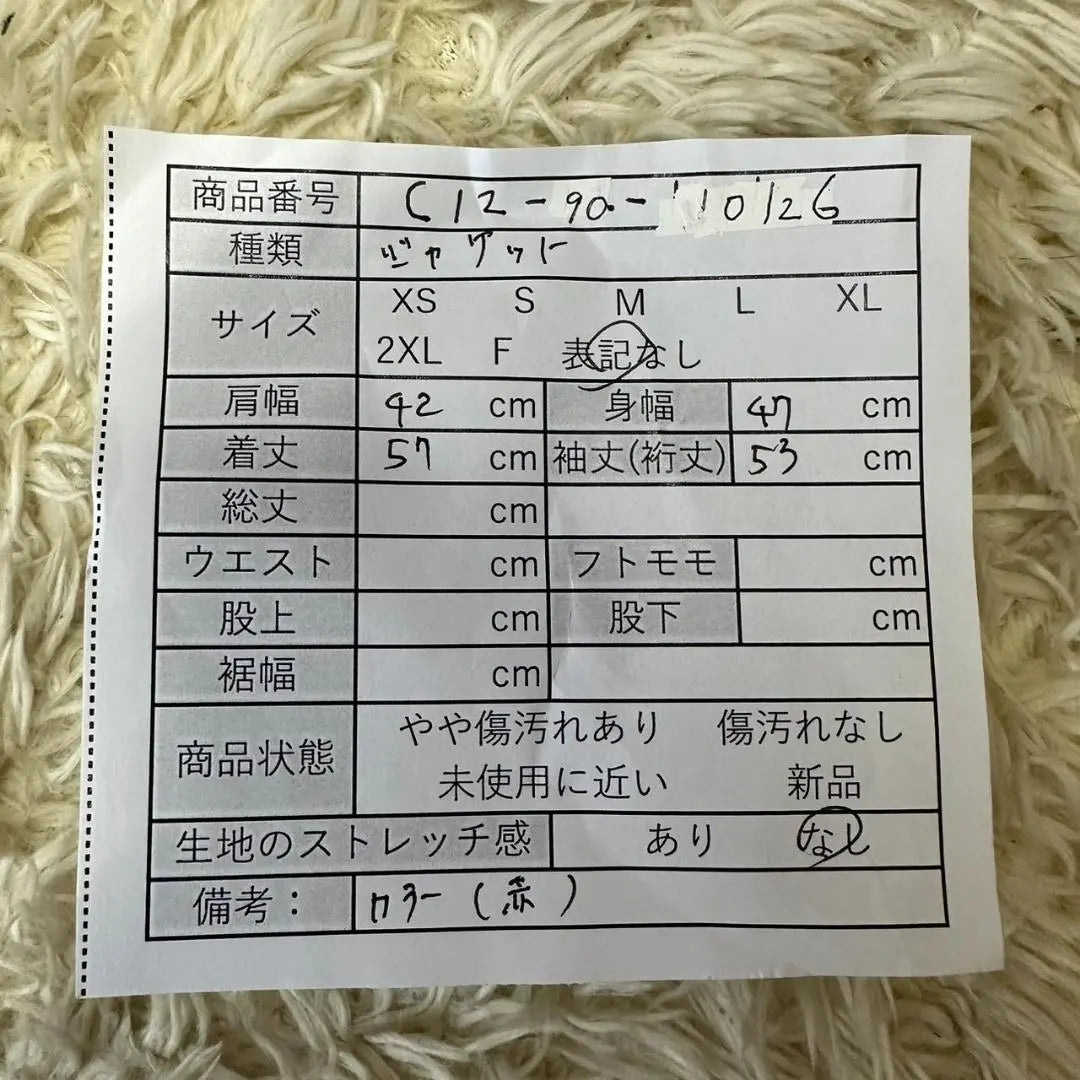 商品番号 C12-90-110126
種類 ジャケット
サイズ XS S M L XL
2XL F 表記なし
肩幅 42 cm 身幅 47 cm
着丈 57 cm 袖丈(裄丈) 53 cm
総丈 cm
ウエスト cm フトモモ cm
股上 cm 股下 cm
裾幅 cm
商品状態 やや傷汚れあり 傷汚れなし
未使用に近い 新品
生地のストレッチ感 あり なし
備考： カラー(赤)